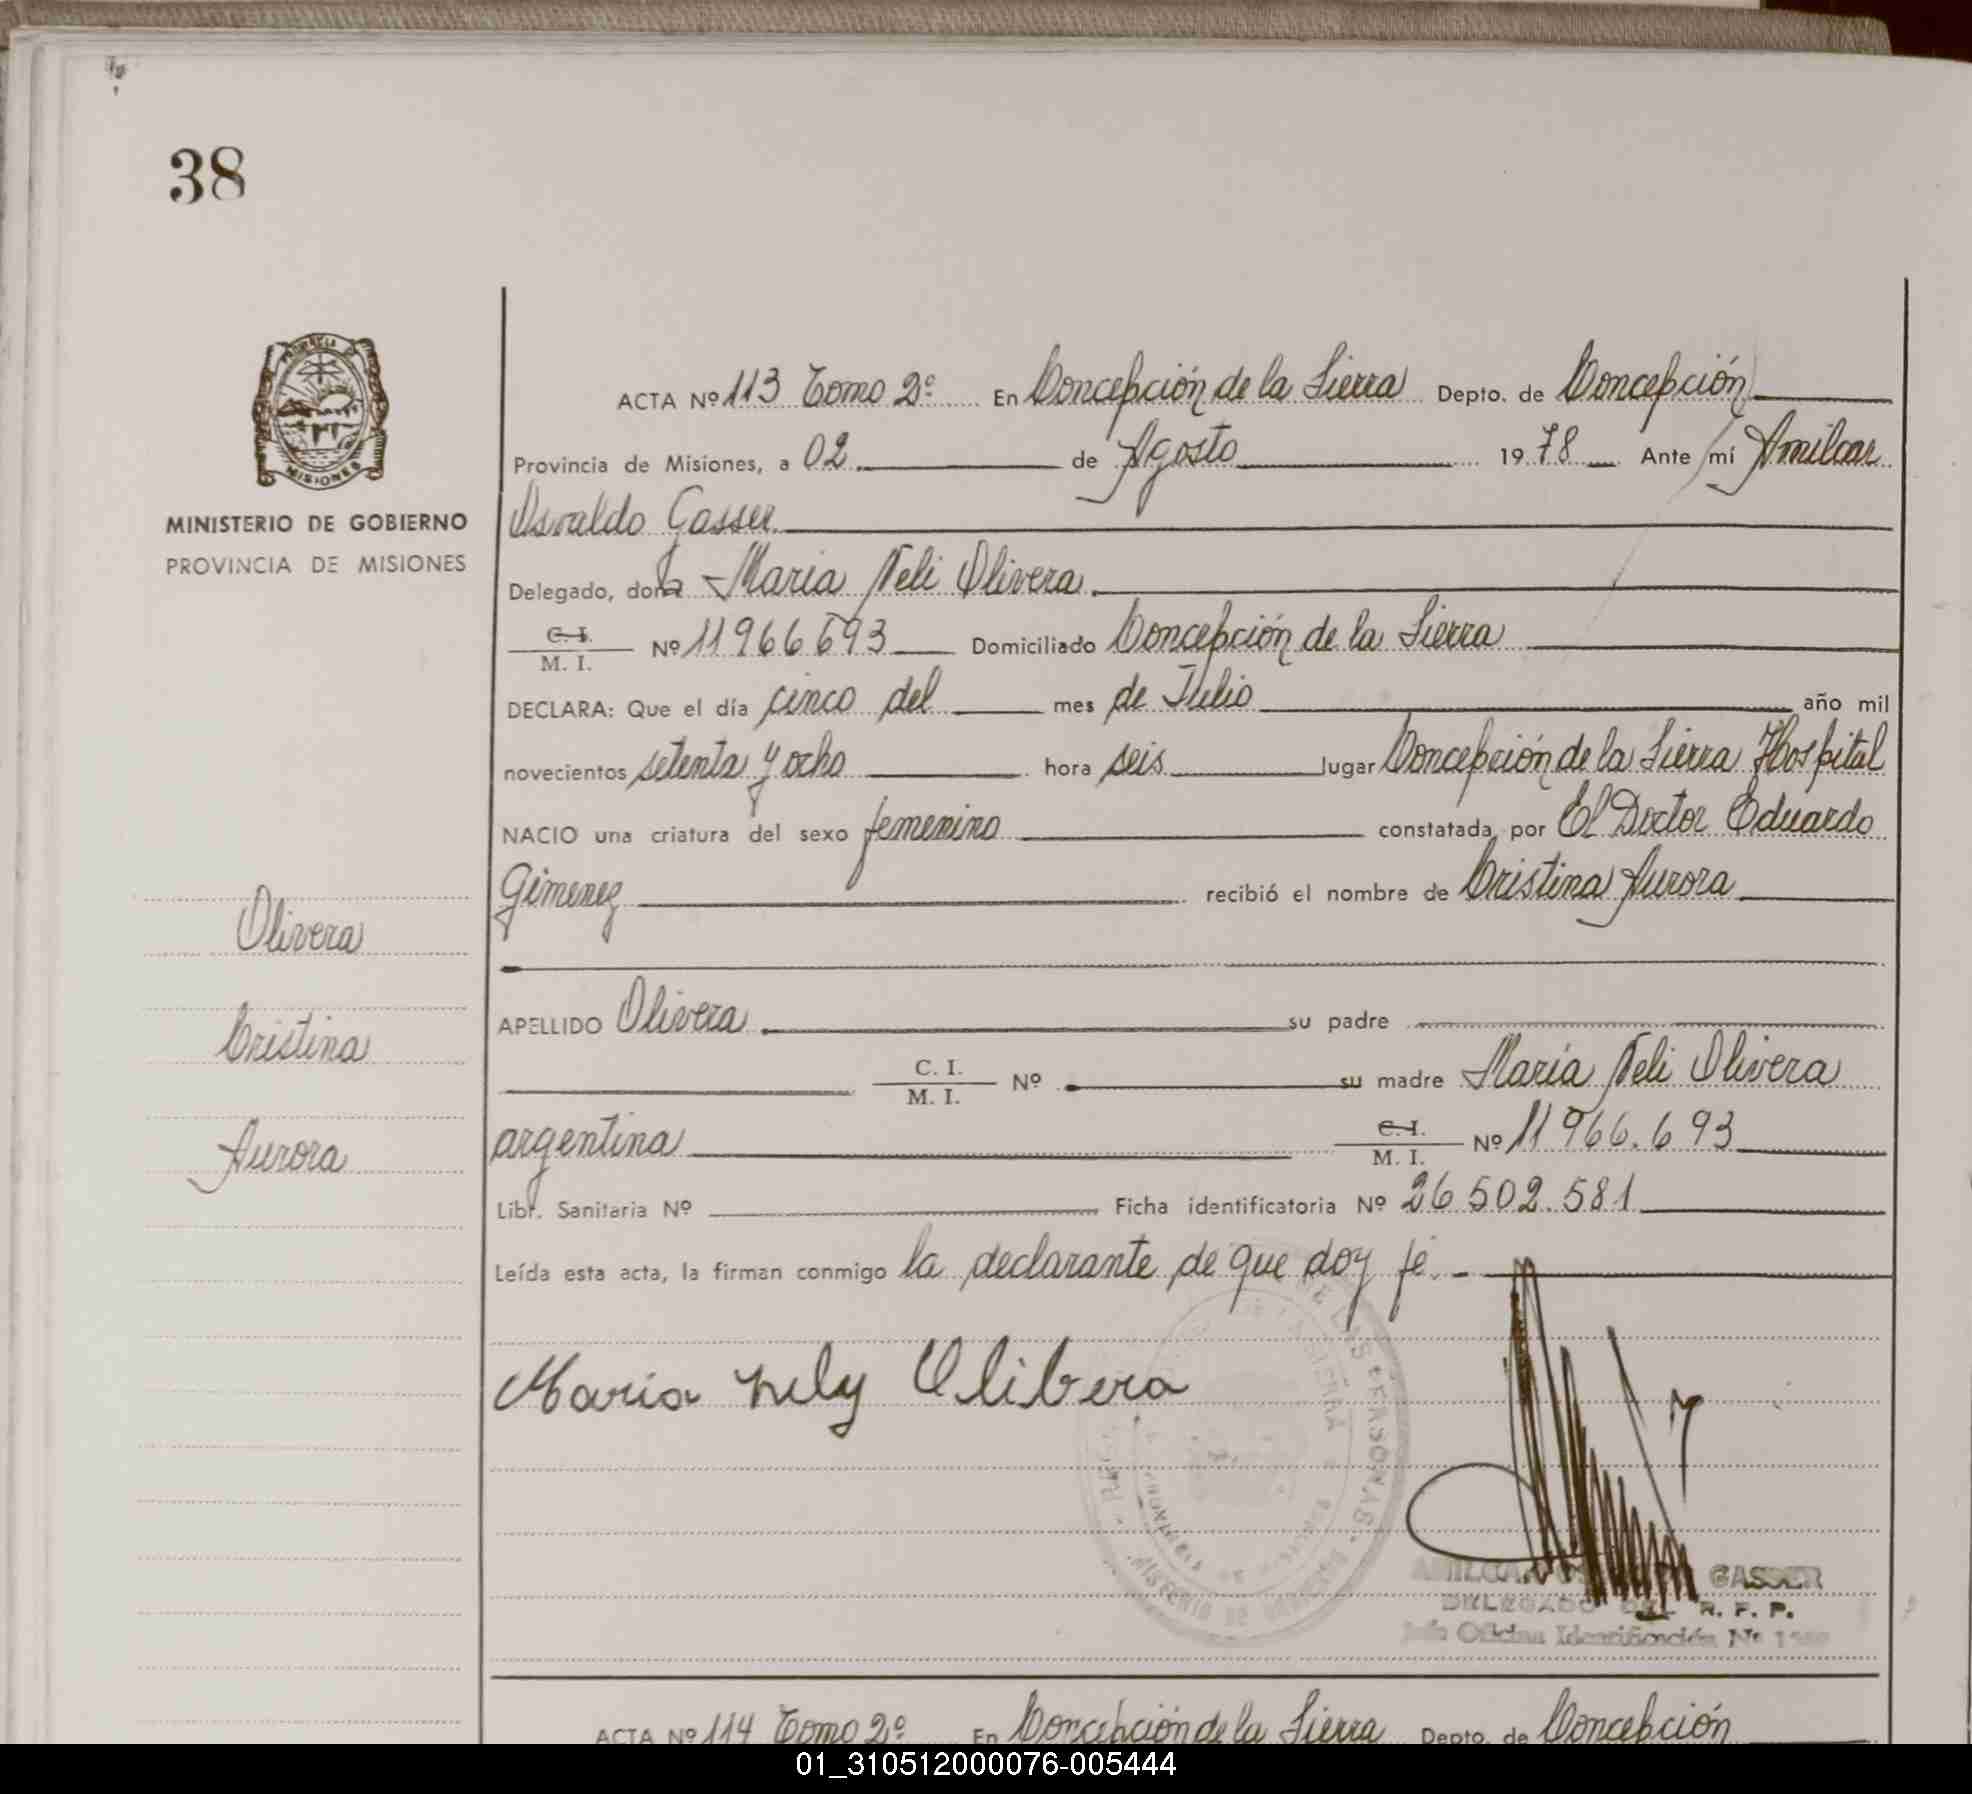 38
MINISTERIO DE GOBIERNO
PROVINCIA DE MISIONES
MISIONES
Olivera
Cristina
Aurora
ACTA Nº 113 Tomo 2º En Concepción de la Sierra Depto. de Concepción
Provincia de Misiones, a 02 de Agosto 1978 Ante mí Amilcar
Osvaldo Gasser
Delegado, doña Maria Neli Olivera
C. I.
M. I. Nº 11966693 Domiciliado Concepción de la Sierra
DECLARA: Que el día cinco del mes de Julio año mil
novecientos setenta y ocho hora seis lugar Concepción de la Sierra Hospital
NACIO una criatura del sexo femenino constatada por El Doctor Eduardo
Gimenez recibió el nombre de Cristina Aurora
APELLIDO Olivera su padre
C. I.
M. I. Nº su madre María Neli Olivera
argentina C. I.
M. I. Nº 11966.693
Libr. Sanitaria Nº Ficha identificatoria Nº 26502.581
Leída esta acta, la firman conmigo la declarante de que doy fé.
Maria nely Olibera
GASSER
DELEGADO DEL R. P. P.
Jefe Oficina Identificación Nº
ACTA Nº 114 Tomo 2º En Concepción de la Sierra Depto. de Concepción
01_310512000076-005444